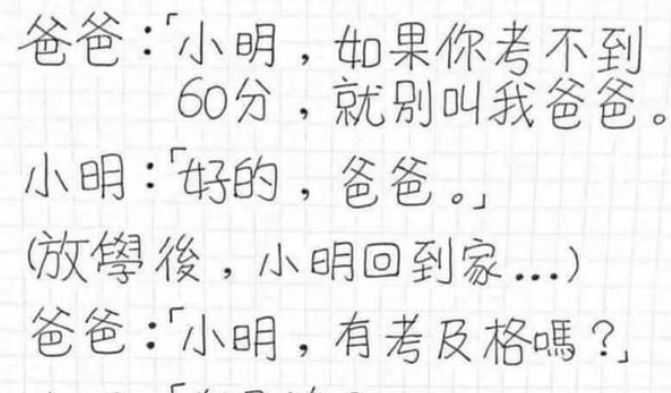 爸爸：「小明，如果你考不到
60分，就別叫我爸爸。
小明：「好的，爸爸。」
(放學後，小明回到家...)
爸爸：「小明，有考及格嗎？」